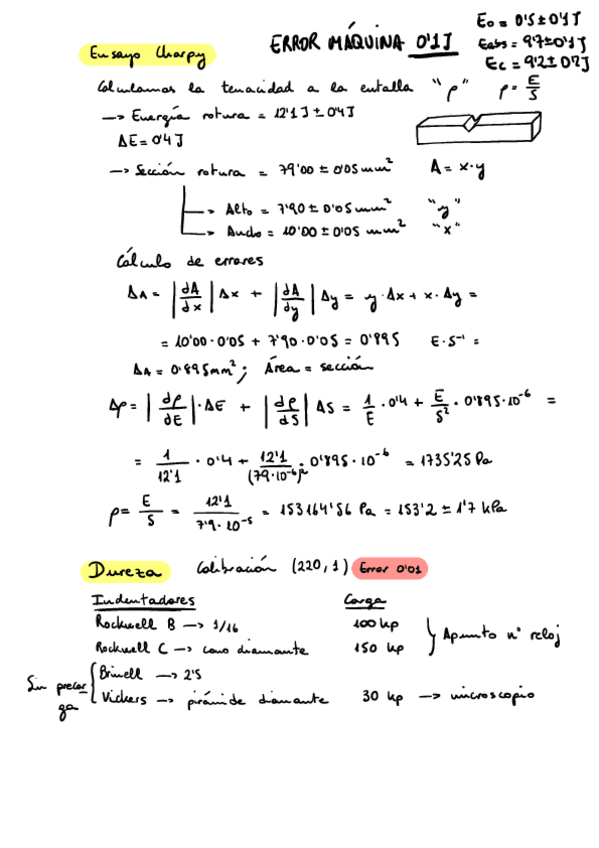 Ensayo Charpy
ERROR MÁQUINA 0'1J
E₀ = 0'5±0'1J
Eabs = 9'7±0'1J
Ec = 9'2±0'2J
Calculamos la tenacidad a la entalla "ρ" ρ = E/S
→ Energía rotura = 12'1J ± 0'4J
ΔE = 0'4J
→ Sección rotura = 79'00 ± 0'05 mm² A = x·y
→ Alto = 7'90 ± 0'05 mm² "y"
→ Ancho = 10'00 ± 0'05 mm² "x"
Cálculo de errores
ΔA = |dA/dx| Δx + |dA/dy| Δy = y·Δx + x·Δy =
= 10'00·0'05 + 7'90·0'05 = 0'895 E·S⁻¹ =
ΔA = 0'895mm²; Área = sección
Δρ = |dρ/dE|·ΔE + |dρ/dS| ΔS = 1/E · 0'4 + E/S² · 0'895·10⁻⁶ =
= 1/12'1 · 0'4 + 12'1/(79·10⁻⁶)² · 0'895·10⁻⁶ = 1735'25 Pa
ρ = E/S = 12'1/7'9·10⁻⁵ = 153164'56 Pa = 153'2 ± 1'7 kPa
Dureza Calibración (220,1) Error 0'01
Indentadores Carga
Rockwell B → 1/16 100 kp
Rockwell C → cono diamante 150 kp
} Apunto nº reloj
Sin precarga
{ Brinell → 2'5
Vickers → pirámide diamante 30 kp → microscopio